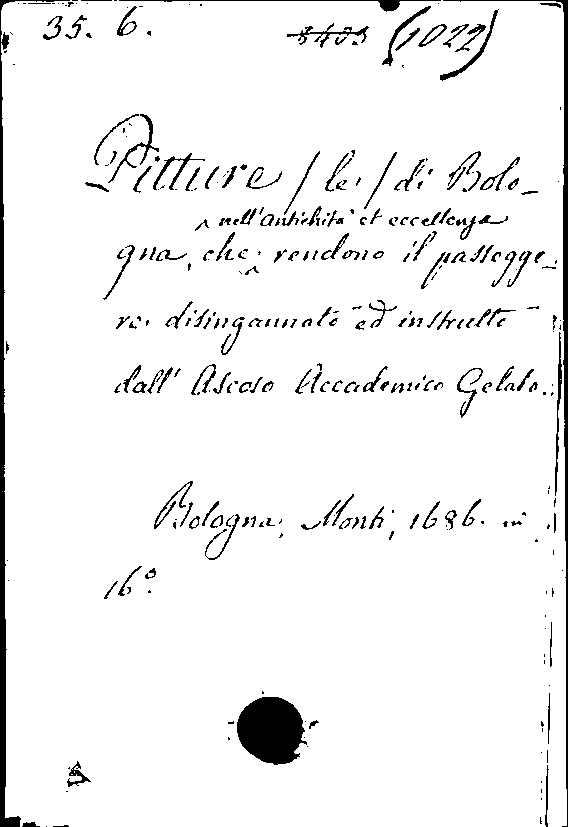 35. 6. 8403 (1022)
Pitture / le / di Bolo-
nell'antichità et eccellenza
gna, che rendono il passegge-
re disingannato ed instrutto
dall' Ascoso Accademico Gelato.
Bologna, Monti, 1686. in
16°.